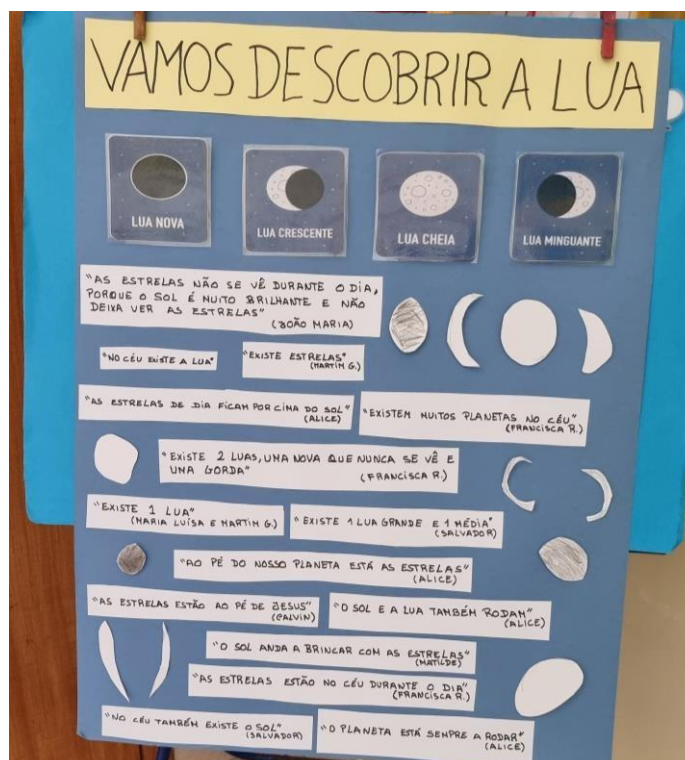 VAMOS DESCOBRIR A LUA
LUA NOVA
LUA CRESCENTE
LUA CHEIA
LUA MINGUANTE
"AS ESTRELAS NÃO SE VÊ DURANTE O DIA,
PORQUE O SOL É MUITO BRILHANTE E NÃO
DEIXA VER AS ESTRELAS"
(JOÃO MARIA)
"NO CÉU EXISTE A LUA"
"EXISTE ESTRELAS"
(MARTIM G.)
"AS ESTRELAS DE DIA FICAM POR CIMA DO SOL"
(ALICE)
"EXISTEM MUITOS PLANETAS NO CÉU"
(FRANCISCA R.)
"EXISTE 2 LUAS, UMA NOVA QUE NUNCA SE VÊ E
UMA GORDA"
(FRANCISCA R.)
"EXISTE 1 LUA"
(MARIA LUÍSA E MARTIM G.)
"EXISTE 1 LUA GRANDE E 1 MÉDIA"
(SALVADOR)
"AO PÉ DO NOSSO PLANETA ESTÁ AS ESTRELAS"
(ALICE)
"AS ESTRELAS ESTÃO AO PÉ DE JESUS"
(CALVIN)
"O SOL E A LUA TAMBÉM RODAM"
(ALICE)
"O SOL ANDA A BRINCAR COM AS ESTRELAS"
(MATILDE)
"AS ESTRELAS ESTÃO NO CÉU DURANTE O DIA"
(FRANCISCA R.)
"NO CÉU TAMBÉM EXISTE O SOL"
(SALVADOR)
"O PLANETA ESTÁ SEMPRE A RODAR"
(ALICE)